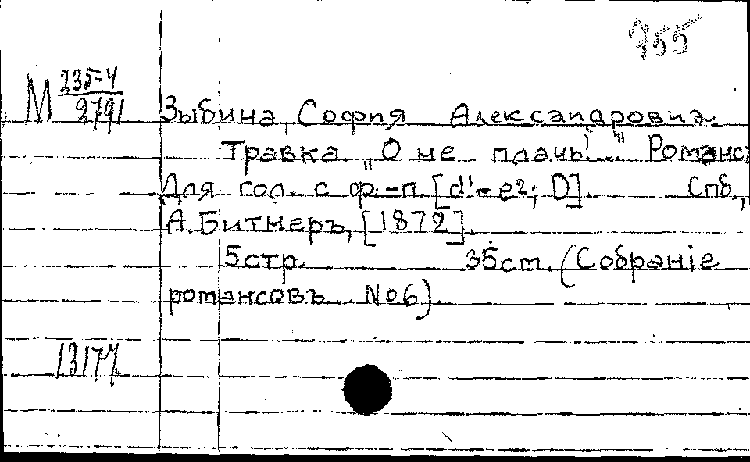 755
М 235-4
2791
Зыбина, София Александровна.
Травка „О не плачь..." Романс
Для гол. с ф.-п. [d¹-e²; D]. Спб.,
А. Битнеръ, [1872].
5 стр. 35 см. (Собранiе
романсовъ №6).
13177